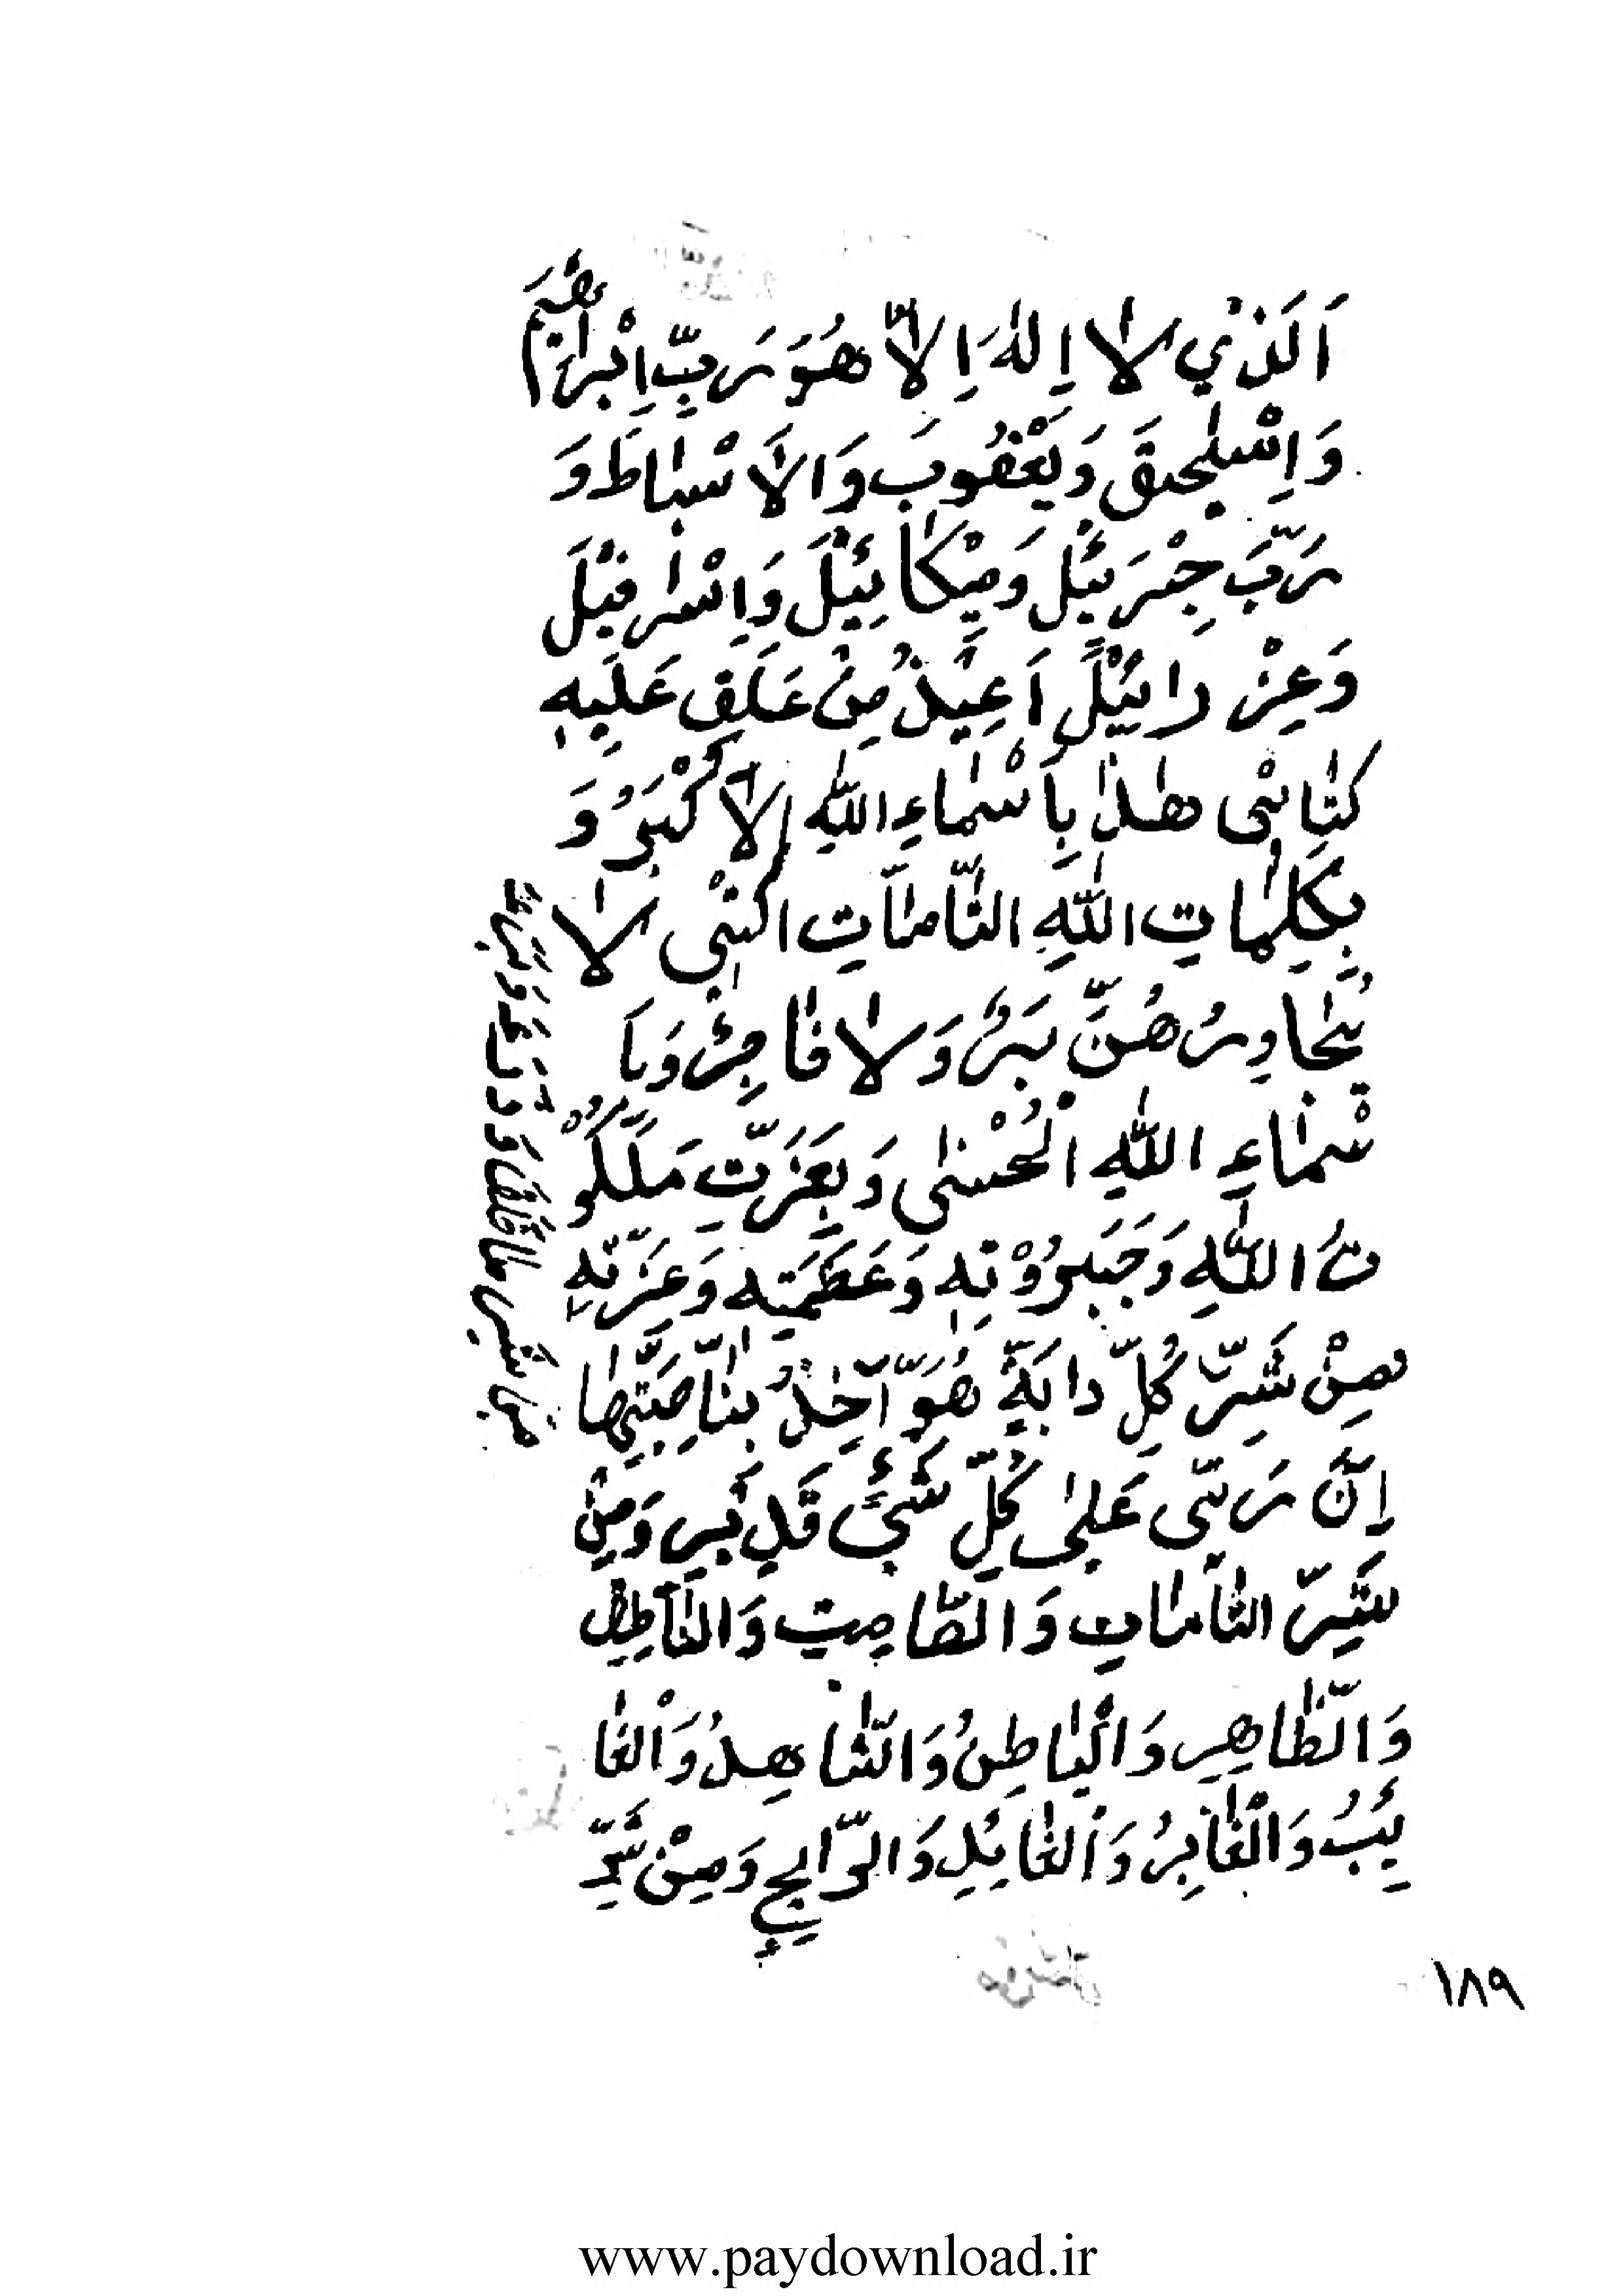 اَلَّذٖي لا اِلٰهَ اِلّا هُوَ رَبِّ اِبْراهٖیمَ
وَ اِسْحٰقَ وَ یَعْقُوبَ وَ الاَسْباطَ وَ
رَبَّ جِبْرَئیٖلَ وَ میٖکائیٖلَ وَ اِسْرافیٖلَ
وَ عِزْرائیٖلَ اَعیٖذُ مِنْ عَلَقِ عَلَیهِ
کِتابٖی هٰذا بِاَسْماءِ اللهِ الاَکْبَرُ وَ
بِکَلِماتِ اللهِ التّامّاتِ الَّتٖی لا
یُجاوِرُهُنَّ بَرٌّ وَ لا فاجِرٌ وَ بِاَ
سْماءِ اللهِ الْحُسْنٰی وَ بِعَزَّتِ مَلَکُوْ
تُ اللهِ وَ جَبَرُوْتِهٖ وَ عَظَمَتِهٖ وَ عِزَّتِهٖ
مِنْ شَرِّ کُلِّ دابَةٍ هُوَ آخِذُ بِناصِیَتِها
اِنَّ رَبّٖی عَلیٰ کُلِّ شَیْئٍ قَدٖیرٍ وَ مِنْ
شَرِّ التّامّاتِ وَ الصّامِتِ وَ النّاطِقِ
وَ الظّاهِرِ وَ الْباطِنُ وَ الشّاهِدُ وَ الْغا
ئِبُ وَ الْغابِرُ وَ الْغائِلِ وَ الْوالِجِ وَ مِنْ شَرِّ
۱۸۹
www.paydownload.ir